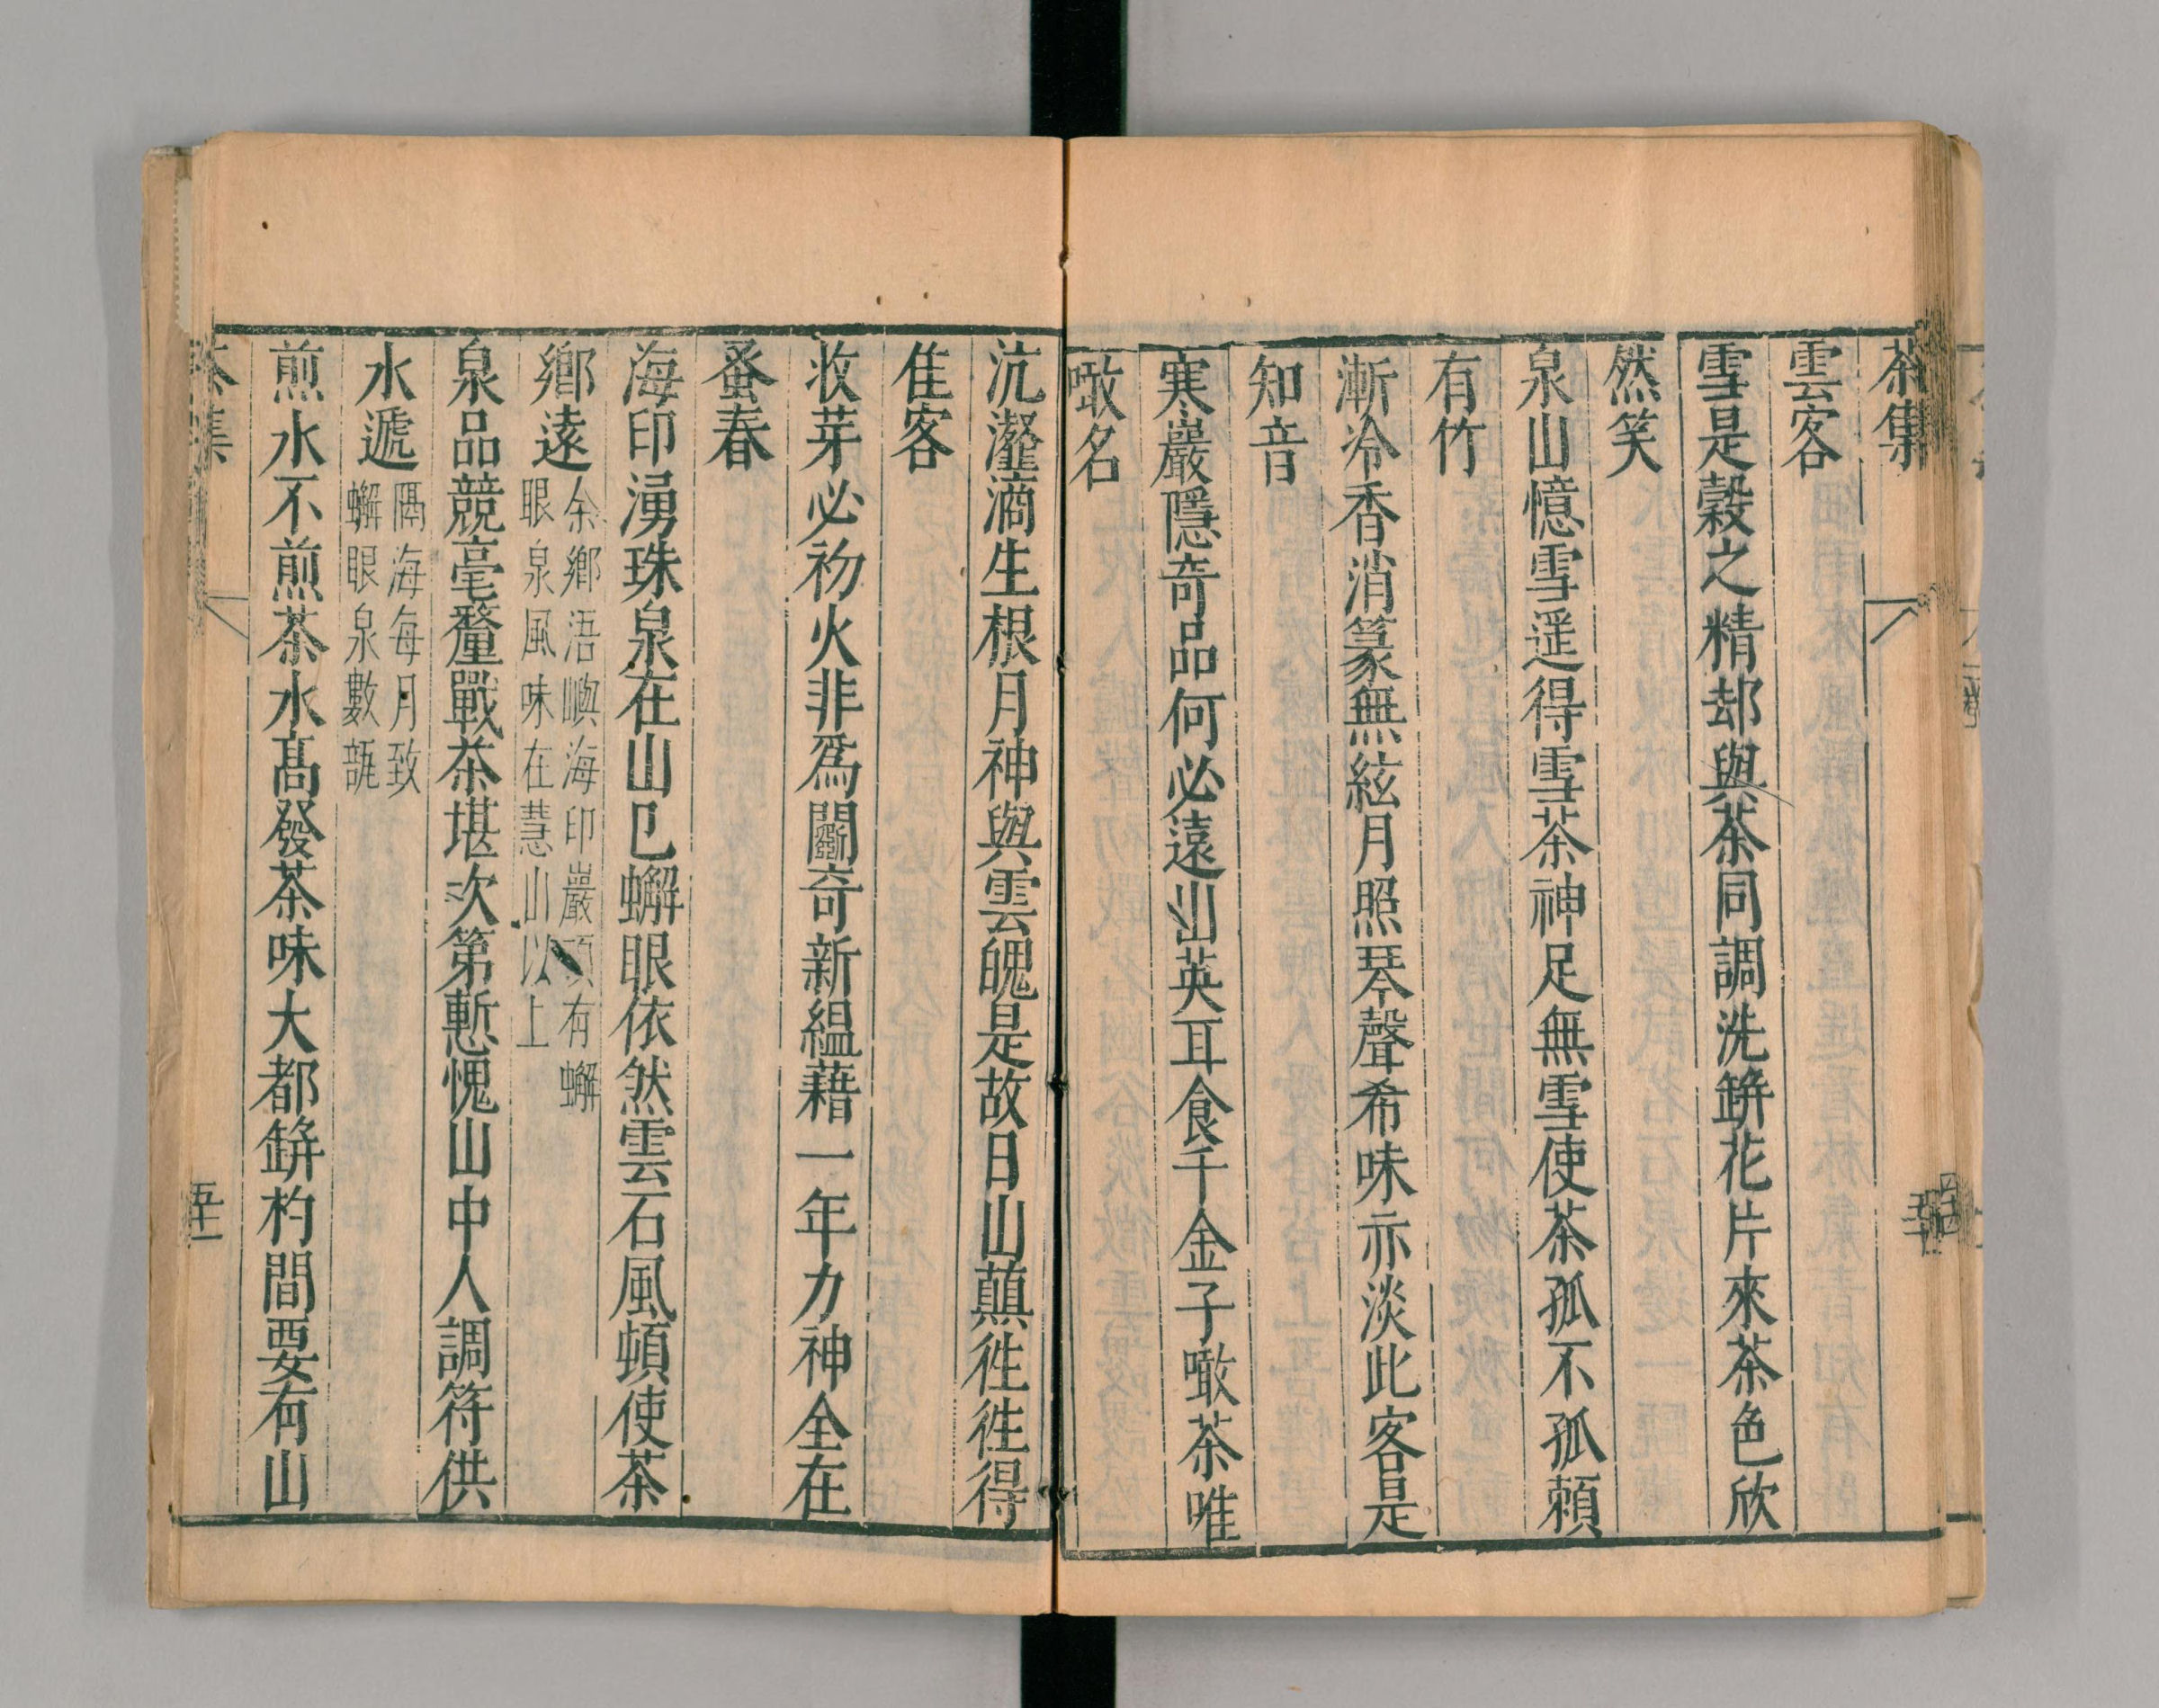 茶集
雲客
雪是穀之精却與茶同調洗缾花片來茶色欣
然笑
泉山憶雪遥得雪茶神足無雪使茶孤不孤頼
有竹
漸冷香消篆無絃月照琴聲希味亦淡此客是
知音
寒巖隱奇品何必遠山英耳食千金子噉茶唯
噉名
沆瀣滴生根月神與雲魄是故日山蘤徃徃得
隹客
收芽必初火非爲鬭奇新緼藉一年力神全在
蚤春
海印湧珠泉在山巳蠏眼依然雲石風頓使茶
鄉遠余鄉浯嶼海印巖頂有蠏
眼泉風味在慧山以上
泉品競毫釐戰茶堪次第慙愧山中人調符供
水遞隔海每月致
蠏眼泉數瓻
煎水不煎茶水髙發茶味大都缾杓間要有山
茶集